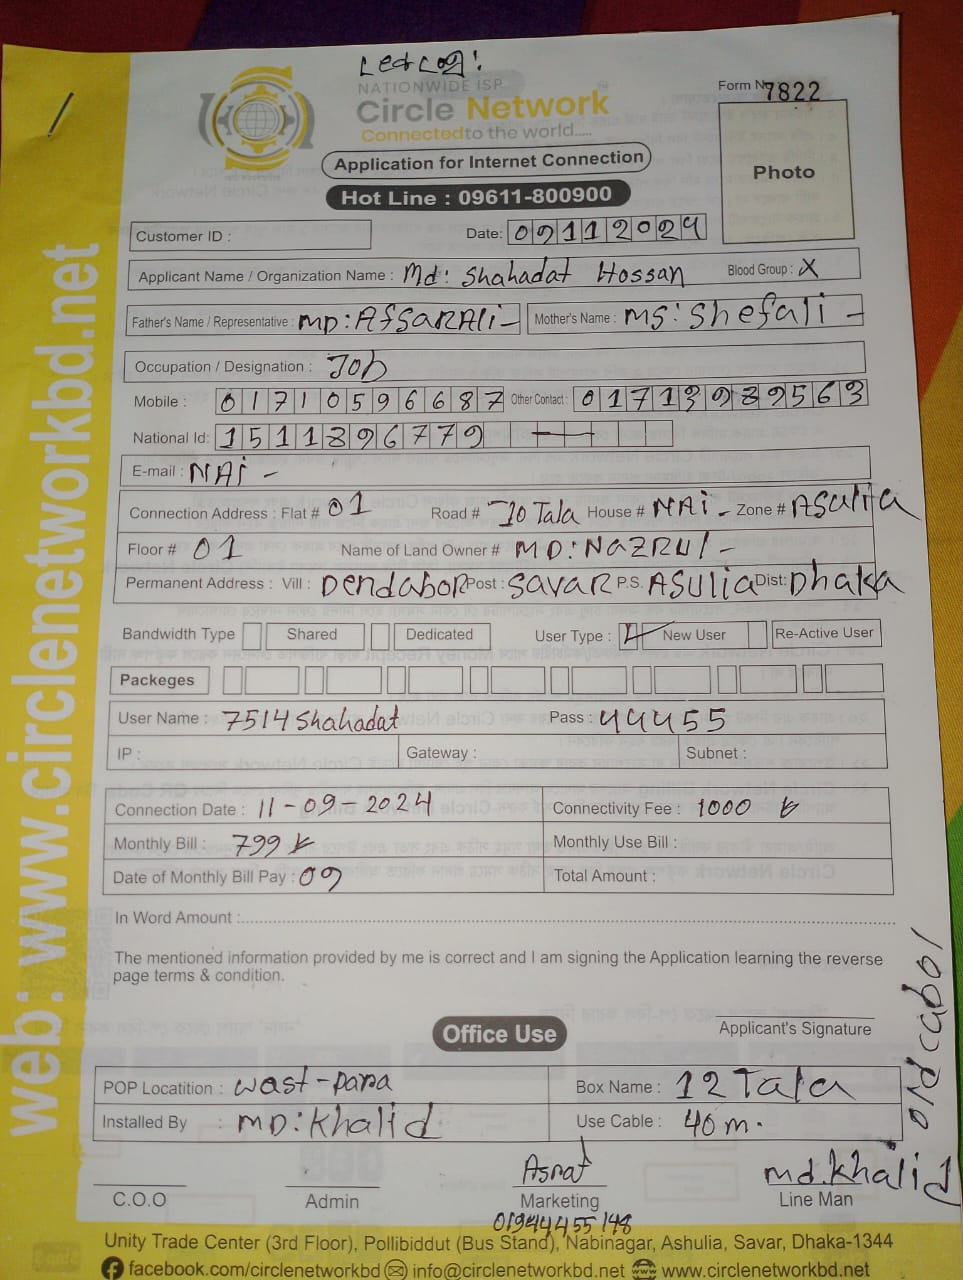 NATIONWIDE ISP
Circle Network
Connected to the world.....
Form No 7822
Application for Internet Connection
Photo
Hot Line : 09611-800900
Customer ID :
Date: 09112024
Applicant Name / Organization Name : Md: Shahadat Hossan Blood Group : X
Father's Name / Representative : MD: AfSARAli - Mother's Name : MS: Shefali -
Occupation / Designation : Job
Mobile : 01710596687 Other Contact :
National Id: 1511896779
E-mail : NAi -
Connection Address : Flat # 01 Road # 10 Tala House # NAi - Zone # ASulia
Floor # 01 Name of Land Owner # MD: NAZRUl -
Permanent Address : Vill : Dendabor Post : SavaR P.S. ASULIA Dist: Dhaka
Bandwidth Type Shared Dedicated User Type : New User Re-Active User
Packeges
User Name : 7514 Shahadat Pass : 44455
IP : Gateway : Subnet :
Connection Date : 11-09-2024 Connectivity Fee : 1000
Monthly Bill : 799 Monthly Use Bill :
Date of Monthly Bill Pay : 09 Total Amount :
In Word Amount :
The mentioned information provided by me is correct and I am signing the Application learning the reverse
page terms & condition.
Applicant's Signature
Office Use
POP Locatition : wast-para Box Name : 12 Tala
Installed By : MD: Khalid Use Cable : 40 m.
old cabol
Asraf md. khalid
C.O.O Admin Marketing Line Man
01944455148
Unity Trade Center (3rd Floor), Pollibiddut (Bus Stand), Nabinagar, Ashulia, Savar, Dhaka-1344
facebook.com/circlenetworkbd info@circlenetworkbd.net www.circlenetworkbd.net
web: www.circlenetworkbd.net